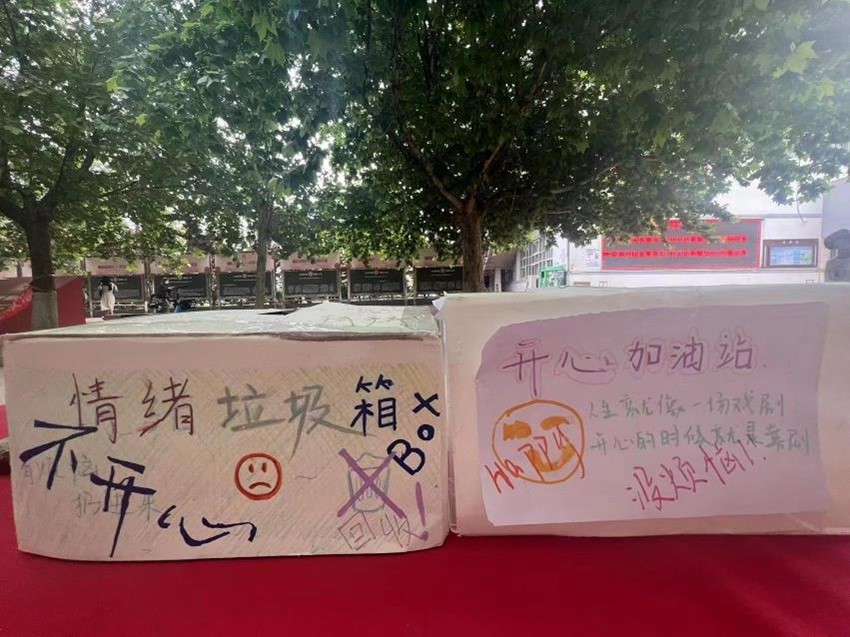 情绪垃圾箱
BOX
不开心
有烦恼
扔进来
回收!
开心加油站
人生就像一场戏剧
开心的时候就是喜剧
HaPPY
没烦恼!